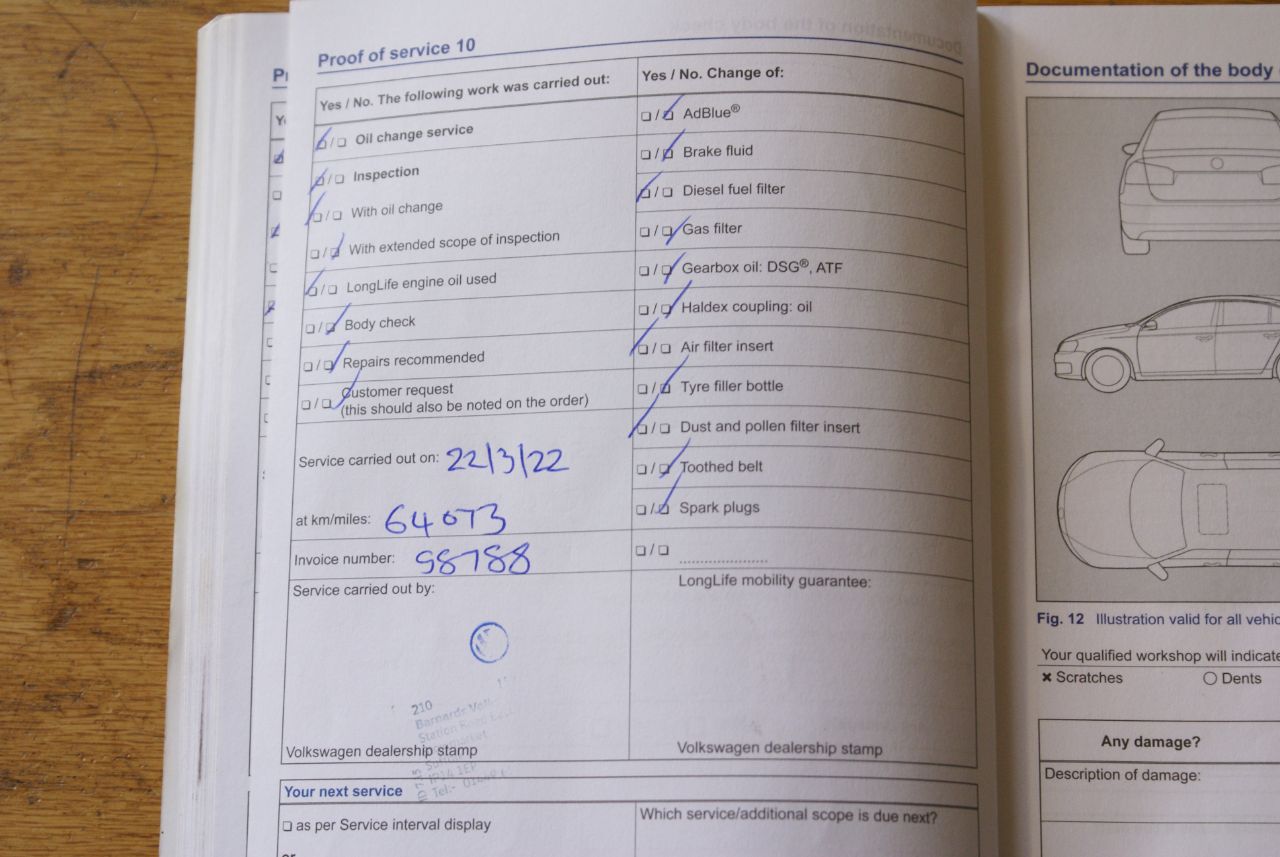 Proof of service 10
Yes / No. The following work was carried out:
❑ / ❑ Oil change service
❑ / ❑ Inspection
❑ / ❑ With oil change
❑ / ❑ With extended scope of inspection
❑ / ❑ LongLife engine oil used
❑ / ❑ Body check
❑ / ❑ Repairs recommended
❑ / ❑ Customer request
(this should also be noted on the order)
Service carried out on: 22/3/22
at km/miles: 64073
Invoice number: 98788
Service carried out by:
210
Barnards
Station Road
IP14 1EF
Tel:-
Volkswagen dealership stamp
Yes / No. Change of:
❑ / ❑ AdBlue®
❑ / ❑ Brake fluid
❑ / ❑ Diesel fuel filter
❑ / ❑ Gas filter
❑ / ❑ Gearbox oil: DSG®, ATF
❑ / ❑ Haldex coupling: oil
❑ / ❑ Air filter insert
❑ / ❑ Tyre filler bottle
❑ / ❑ Dust and pollen filter insert
❑ / ❑ Toothed belt
❑ / ❑ Spark plugs
❑ / ❑ ......................
LongLife mobility guarantee:
Volkswagen dealership stamp
Your next service
❑ as per Service interval display
or
Which service/additional scope is due next?
Documentation of the body
Fig. 12 Illustration valid for all
Your qualified workshop will indicate
✖ Scratches ○ Dents
Any damage?
Description of damage: